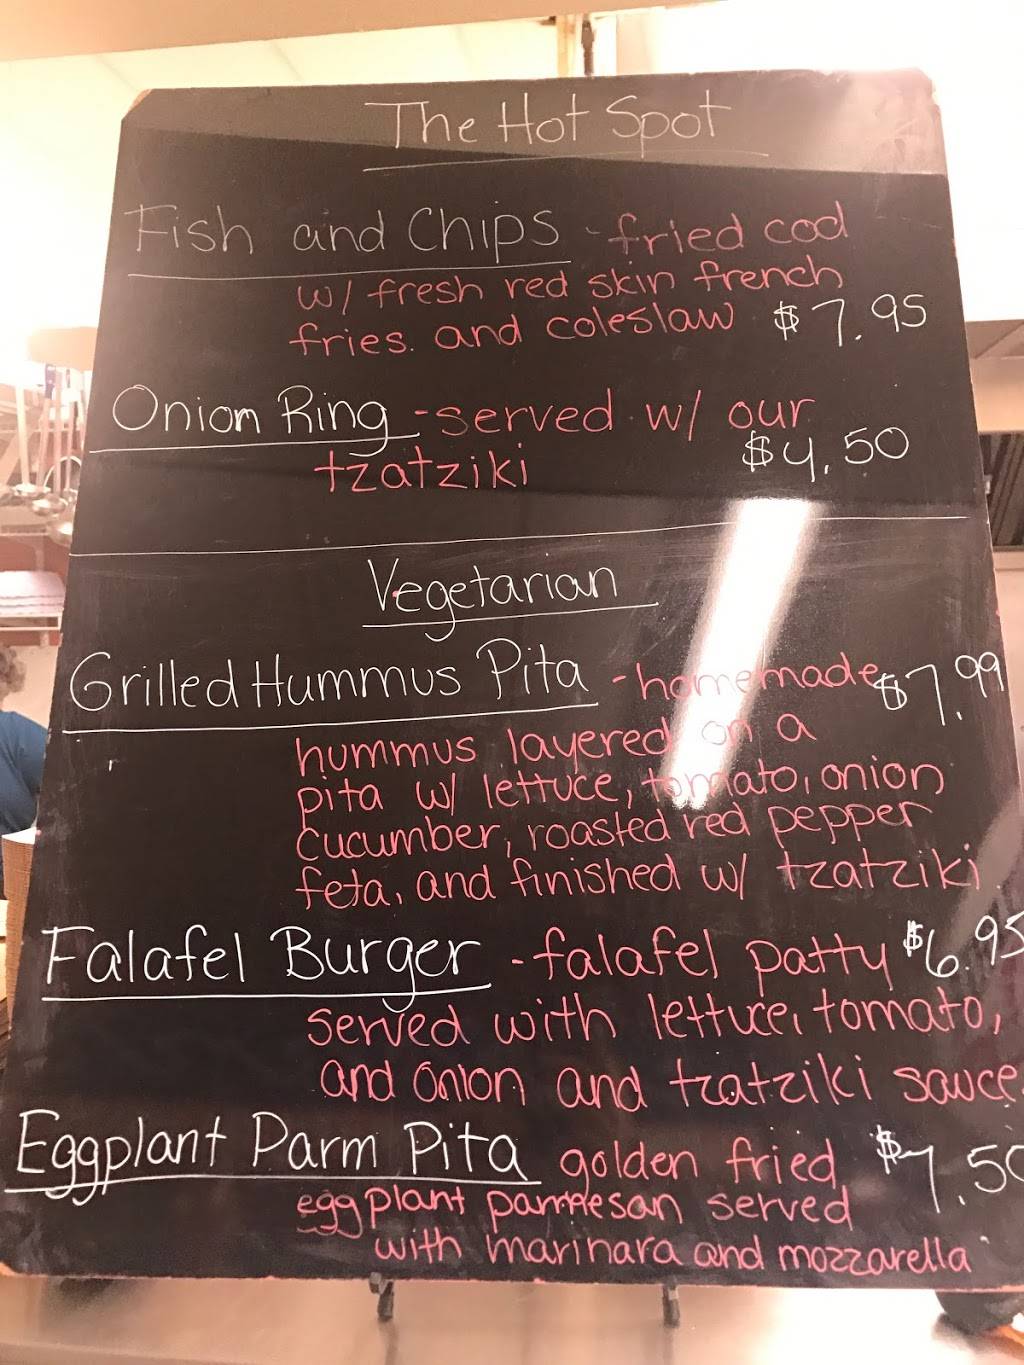 The Hot Spot
Fish and Chips - fried cod
w/ fresh red skin french
fries. and coleslaw $7.95
Onion Ring - served w/ our
tzatziki $4.50
Vegetarian
Grilled Hummus Pita - homemade $7.99
hummus layered on a
pita w/ lettuce, tomato, onion,
cucumber, roasted red pepper
feta, and finished w/ tzatziki
Falafel Burger - falafel patty $6.95
served with lettuce, tomato,
and onion and tzatziki sauce
Eggplant Parm Pita golden fried $7.50
eggplant parmesan served
with marinara and mozzarella